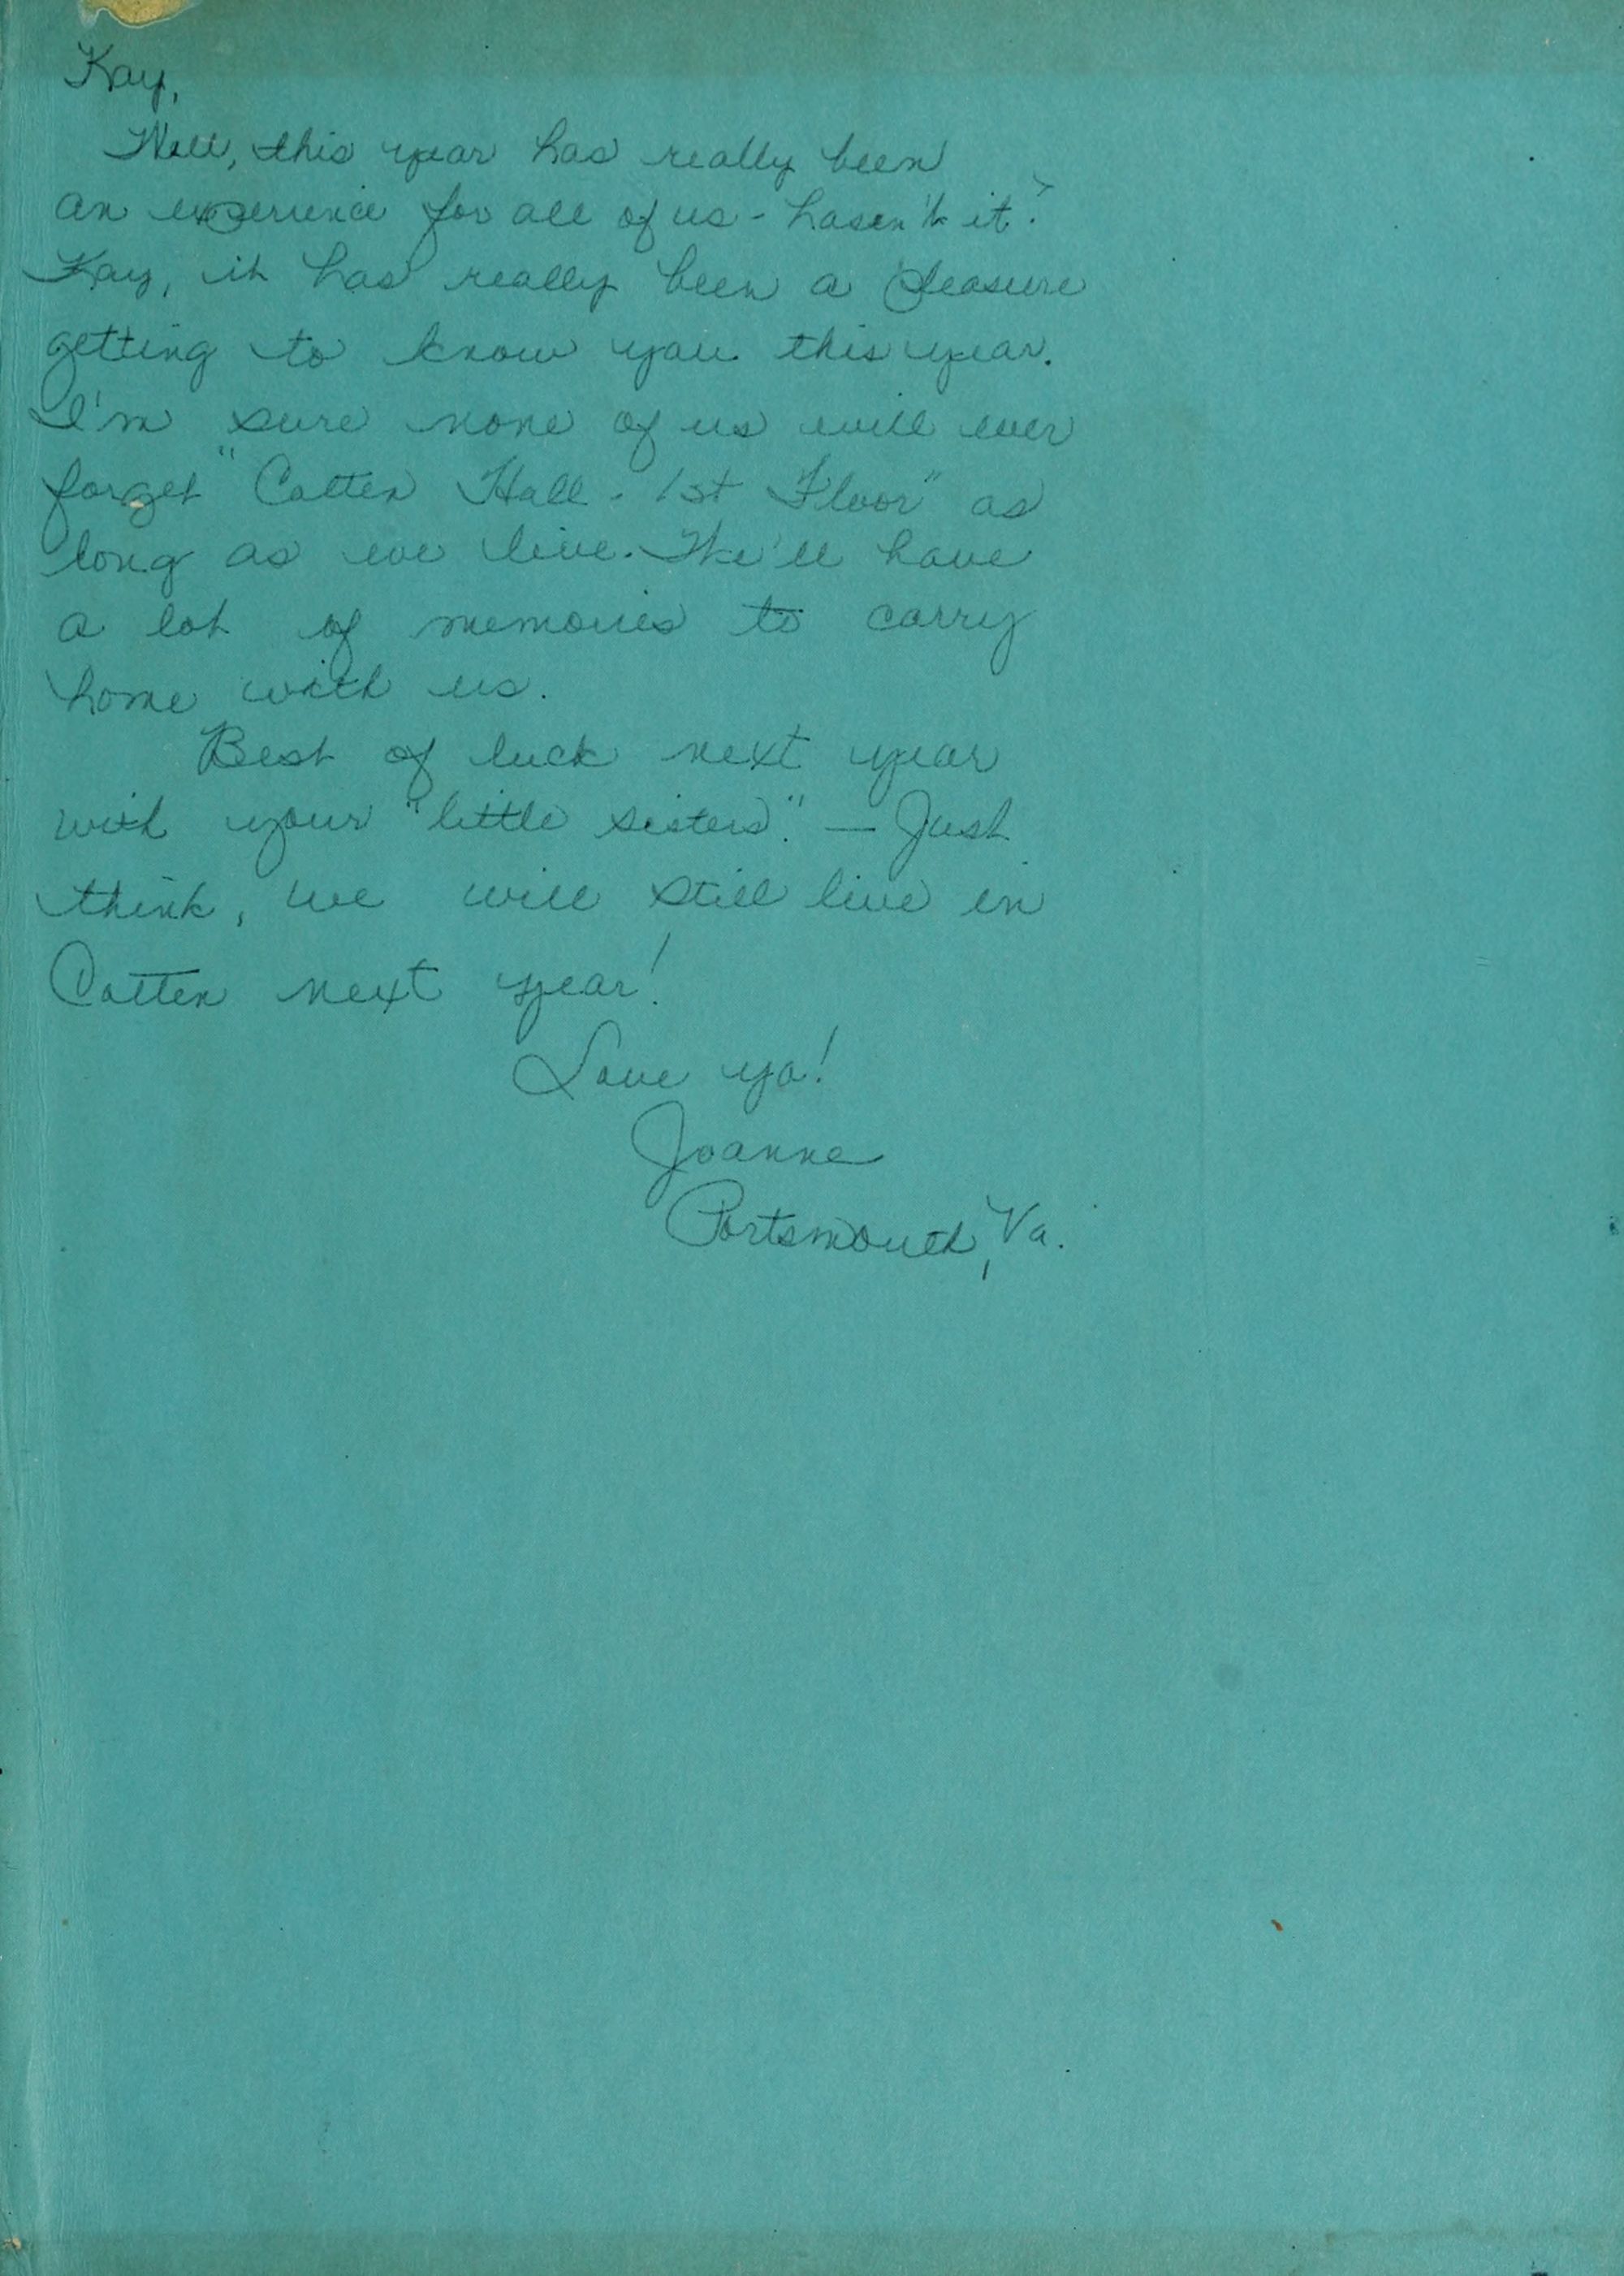 Kay,
Well, this year has really been
an experience for all of us - hasen't it?
Kay, it has really been a pleasure
getting to know you this year.
I'm sure none of us will ever
forget "Cotten Hall - 1st Floor" as
long as we live. We'll have
a lot of memories to carry
home with us.
Best of luck next year
with your "little sisters." — Just
think, we will still live in
Cotten next year!
Love ya!
Joanne
Portsmouth, Va.